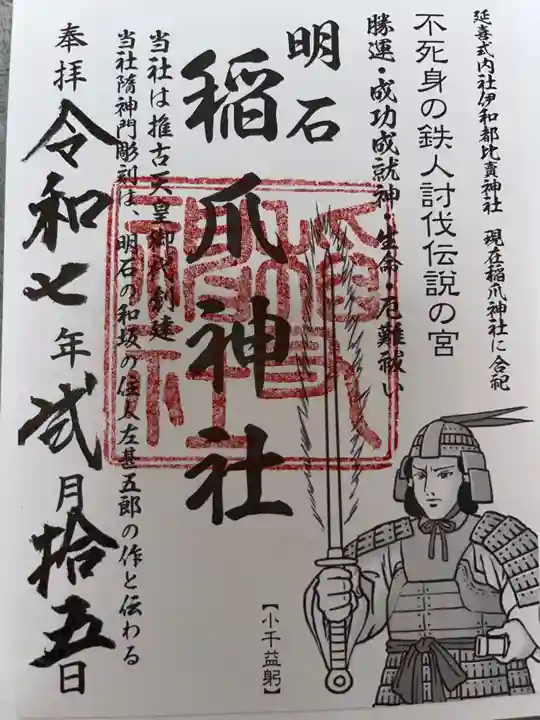 延喜式内社伊和都比賣神社 現在稲爪神社に合祀
不死身の鉄人討伐伝説の宮
勝運・成功成就神・生命・厄難祓い
明石
稲爪神社
当社は推古天皇御代創建
当社隋神門彫刻は、明石の和坂の住人左甚五郎の作と伝わる
奉拝
令和七年弐月拾五日
【小千益躬】